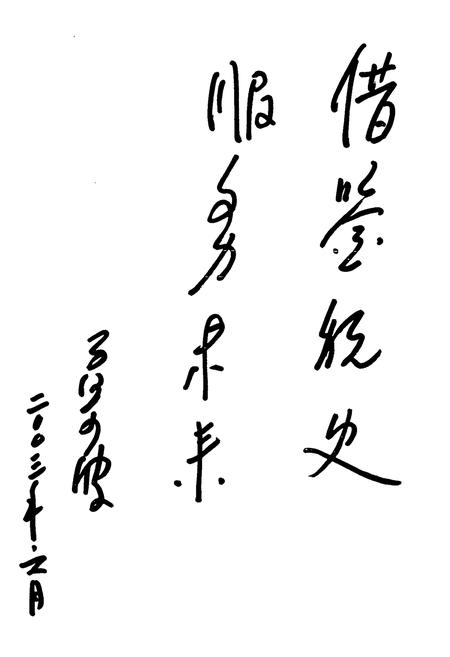 借鉴税史
服务未来
二〇〇三年.六月